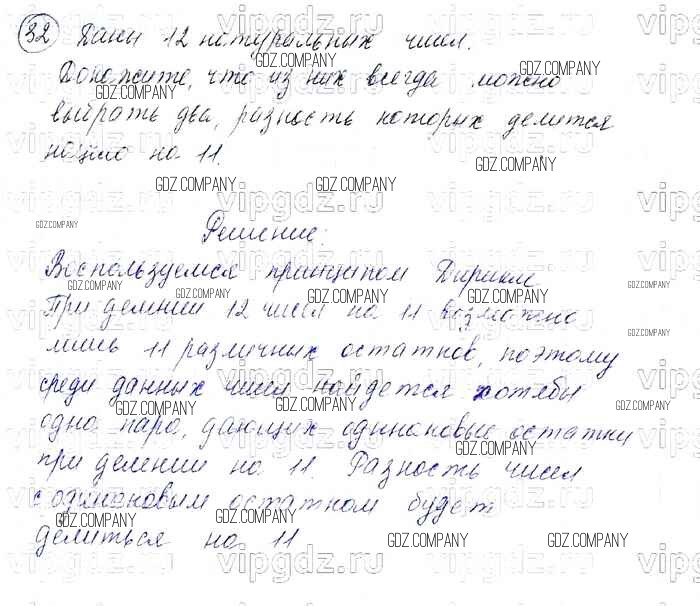 32 Даны 12 натуральных чисел.
Докажите, что из них всегда можно
выбрать два, разность которых делится
нацело на 11.
Решение:
Воспользуемся принципом Дирихле
При делении 12 чисел на 11 возможно
лишь 11 различных остатков, поэтому
среди данных чисел найдется хотябы
одна пара, дающих одинаковые остатки
при делении на 11. Разность чисел
с одинаковым остатком будет
делиться на 11